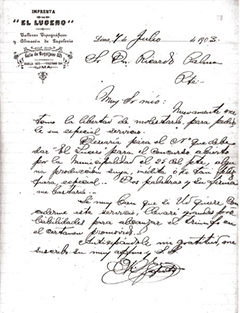 IMPRENTA
"EL LUCERO"
Talleres Tipográficos
Almacén de Papelería
Lima, 7 de Julio de 1903
Sr. Dn. Ricardo Palma
Pte.
Muy Sr. mío: Nuevamente me
tomo la libertad de molestarlo para pedir
le un especial servicio.
para el Nº que debe
dar "El Lucero" para el Concurso abierto
por la Municipalidad el 25 del pte, algu
na producción suya, inédita
Dos palabras y su firma
me bastará.
Es muy claro que si Ud quiere
este servicio, llevaré grandes pro
babilidades para alcanzar el triunfo en
el certamen promovido.
Anticipándole mi gratitud, me
suscribo su muy atto y S. S.